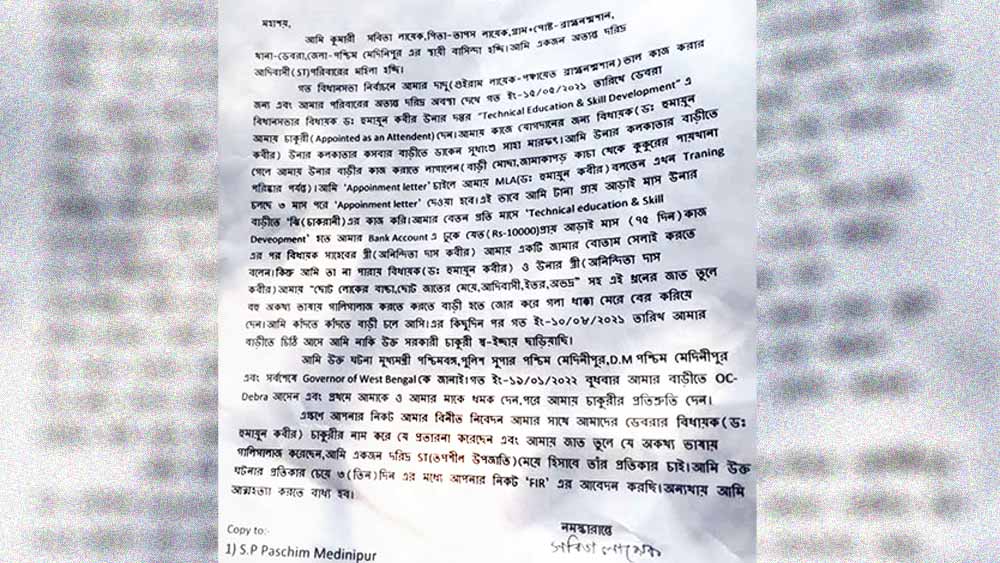 মহাশয়,
আমি কুমারী সবিতা লায়েক,পিতা-তাপস লায়েক,গ্রাম+পোষ্ট-রাজ্বনরশান,
থানা-ডেবরা,জেলা-পশ্চিম মেদিনিপুর এর স্থায়ী বাসিন্দা হচ্ছি।আমি একজন অত্যন্ত দরিদ্র
আদিবাসী(ST)পরিবারের মহিলা হচ্ছি।
গত বিধানসভা নির্বাচনে আমার দাদু(গুইরাম লায়েক-পঞ্চায়েত) ভাল কাজ করার
জন্য এবং আমার পরিবারের অত্যন্ত দরিদ্র অবস্থা দেখে গত ইং-১৫/০৫/২০২১ তারিখে ডেবরা
বিধানসভার বিধায়ক ডঃ হুমায়ুন কবীর উনার দপ্তর "Technical Education & Skill Development" এ
আমায় চাকুরী(Appointed as an Attendent)দেন।আমায় কাজে যোগদানের জন্য বিধায়ক(ডঃ হুমায়ুন
কবীর) উনার কলকাতার কসবার বাড়ীতে ডাকেন সুধাংশু সাহা মারফৎ।আমি উনার কলকাতার বাড়ীতে
গেলে আমায় উনার বাড়ীর কাজ করাতে লাগালেন(বাড়ী মোছা,জামাকাপড় কাচা থেকে কুকুরের পায়খানা
পরিষ্কার পর্যন্ত)।আমি 'Appoinment letter'চাইলে আমায় MLA(ডঃ হুমায়ুন কবীর)বলতেন এখন Traning
চলছে ৩ মাস পরে 'Appoinment letter' দেওয়া হবে।এই ভাবে আমি টানা প্রায় আড়াই মাস উনার
বাড়ীতে 'ঝি(চাকরানী)এর কাজ করি।আমার বেতন প্রতি মাসে 'Technical education & Skill
Deveopment' হতে আমার Bank Account এ ঢুকে যেত(Rs-10000)প্রায় আড়াই মাস (৭৫ দিন)কাজ
এর পর বিধায়ক সাহেবের স্ত্রী(অনিন্দিতা দাস কবীর) আমায় একটি জামার বোতাম সেলাই করতে
বলেন।কিন্তু আমি তা না পারায় বিধায়ক(ডঃ হুমায়ুন কবীর) ও উনার স্ত্রী(অনিন্দিতা দাস
কবীর)আমায় "ছোট লোকের বাচ্চা,ছোট জাতের মেয়ে,আদিবাসী,ইতর,অভদ্র" সহ এই ধ্রনের জাত তুলে
বহু অকথ্য ভাষায় গালিগালাজ করতে করতে বাড়ী হতে জোর করে গলা ধাক্কা মেরে বের করিয়ে
দেন।আমি কাঁদতে কাঁদতে বাড়ী চলে আসি।এর কিছুদিন পর গত ইং-১০/০৮/২০২১ তারিখ আমার
বাড়ীতে চিঠি আসে আমি নাকি উক্ত সরকারী চাকুরী স্ব-ইচ্ছায় ছাড়িয়াছি।
আমি উক্ত ঘটনা মুখ্যমন্ত্রী পশ্চিমবঙ্গ,পুলিশ সুপার পশ্চিম মেদিনীপুর,D.M পশ্চিম মেদিনীপুর
এবং সর্বশেষে Governor of West Bengalকে জানাই।গত ইং-১৯/০১/২০২২ বুধবার আমার বাড়ীতে OC-
Debra আসেন এবং প্রথমে আমাকে ও আমার মাকে ধমক দেন,পরে আমায় চাকুরীর প্রতিশ্রুতি দেন।
এক্ষণে আপনার নিকট আমার বিনীত নিবেদন আমার সাথে আমাদের ডেবরার বিধায়ক(ডঃ
হুমায়ুন কবীর) চাকুরীর নাম করে যে প্রতারনা করেছেন এবং আমায় জাত তুলে যে অকথ্য ভাষায়
গালিগালাজ করেছেন,আমি একজন দরিদ্র ST(তপশীল উপজাতি)মেয়ে হিসাবে তাঁর প্রতিকার চাই।আমি উক্ত
ঘটনার প্রতিকার চেয়ে ৩(তিন)দিন এর মধ্যে আপনার নিকট 'FIR' এর আবেদন করছি।অন্যথায় আমি
আত্মহত্যা করতে বাধ্য হব।
নমস্কারান্তে
সবিতা লায়েক
Copy to:-
1) S.P Paschim Medinipur